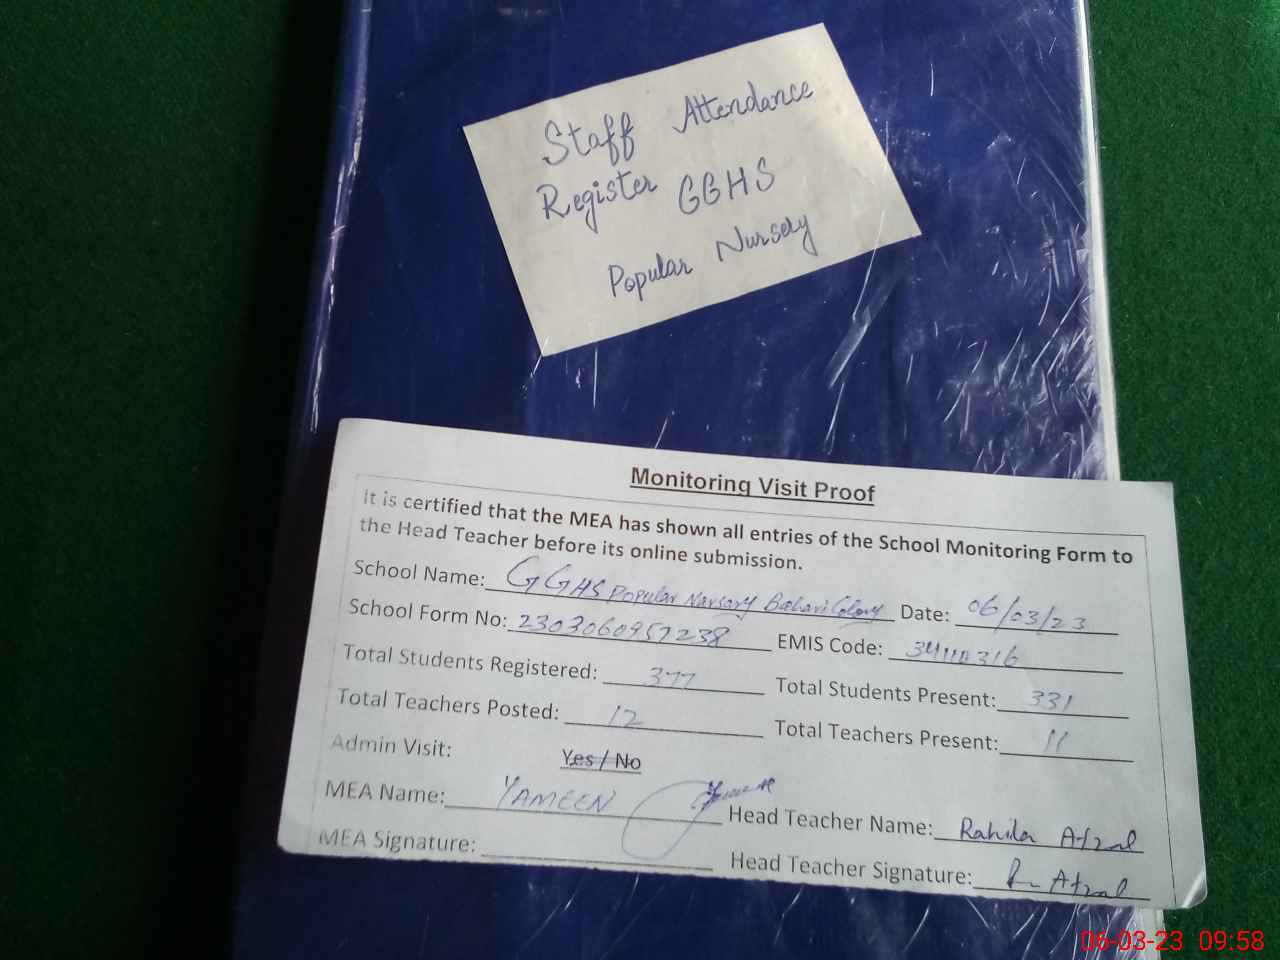 Staff Attendance
Register GGHS
Popular Nursery
Monitoring Visit Proof
It is certified that the MEA has shown all entries of the School Monitoring Form to
the Head Teacher before its online submission.
School Name: GGHS Popular Nursery Bahari Colony Date: 06/03/23
School Form No: 2303060957238 EMIS Code:
Total Students Registered: 377 Total Students Present: 331
Total Teachers Posted: 12 Total Teachers Present: 11
Admin Visit: Yes / No
MEA Name: YAMEEN Head Teacher Name: Rahila Afzal
MEA Signature: Head Teacher Signature: R Afzal
06-03-23 09:58